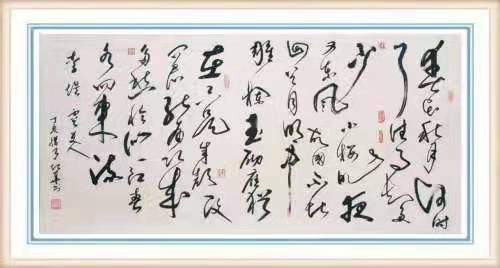 春花秋月何时
了往事知多
少小楼昨夜
又东风故国不堪
回首月明中
雕栏玉砌应犹
在只是朱颜改
问君能有几
多愁恰似一江春
水向東流
李煜 虞美人
丁亥